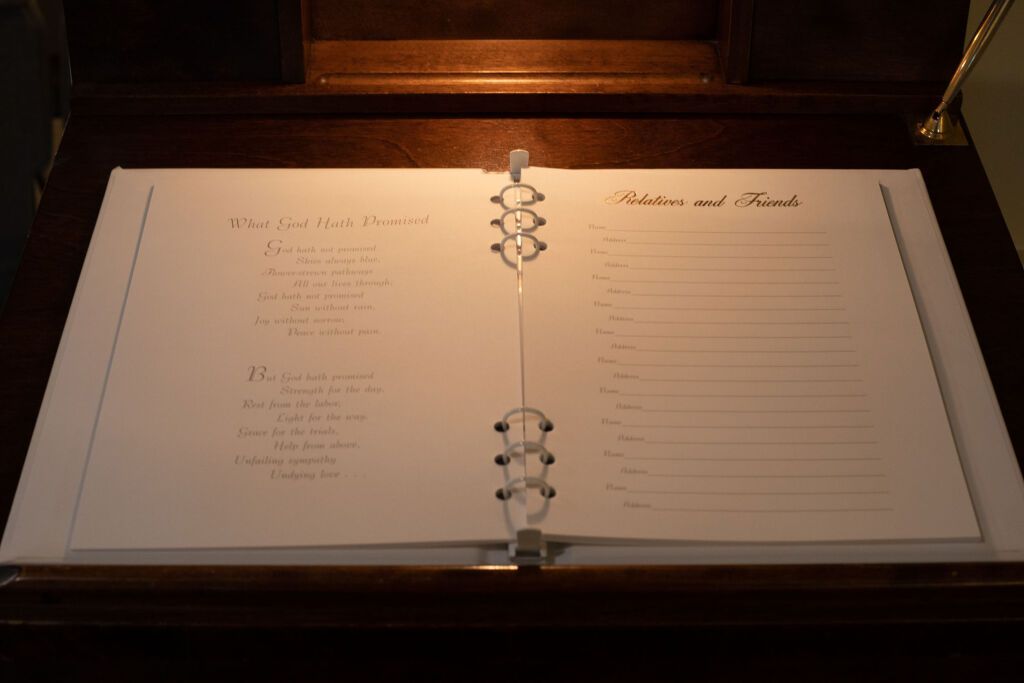 What God Hath Promised
God hath not promised
Skies always blue,
Flower-strewn pathways
All our lives through;
God hath not promised
Sun without rain,
Joy without sorrow,
Peace without pain.
But God hath promised
Strength for the day,
Rest from the labor,
Light for the way.
Grace for the trials,
Help from above,
Unfailing sympathy
Undying love . . .
Relatives and Friends
Name
Address
Name
Address
Name
Address
Name
Address
Name
Address
Name
Address
Name
Address
Name
Address
Name
Address
Name
Address